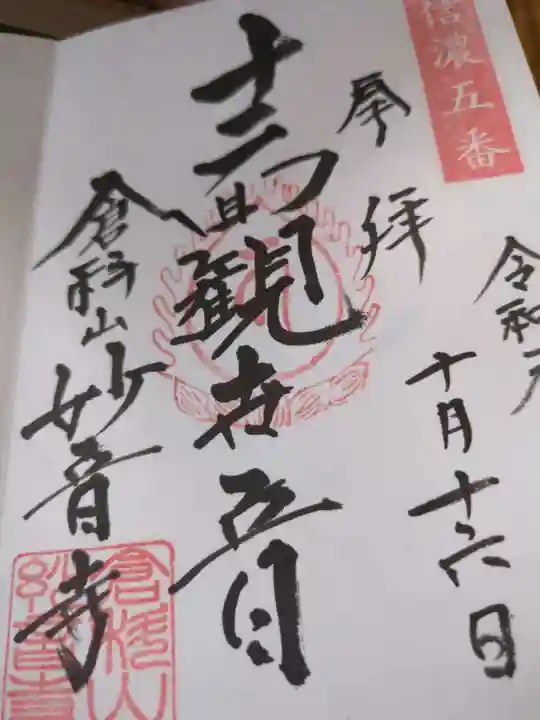 信濃五番
令和
十月十六日
奉拝
十一面観世音
倉科山妙音寺
倉科山
妙音寺